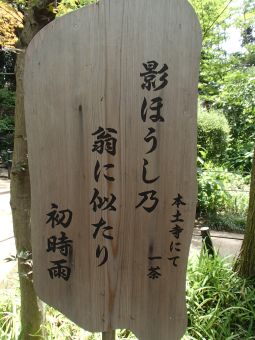 本土寺にて
一茶
影ほうし乃
翁に似たり
初時雨